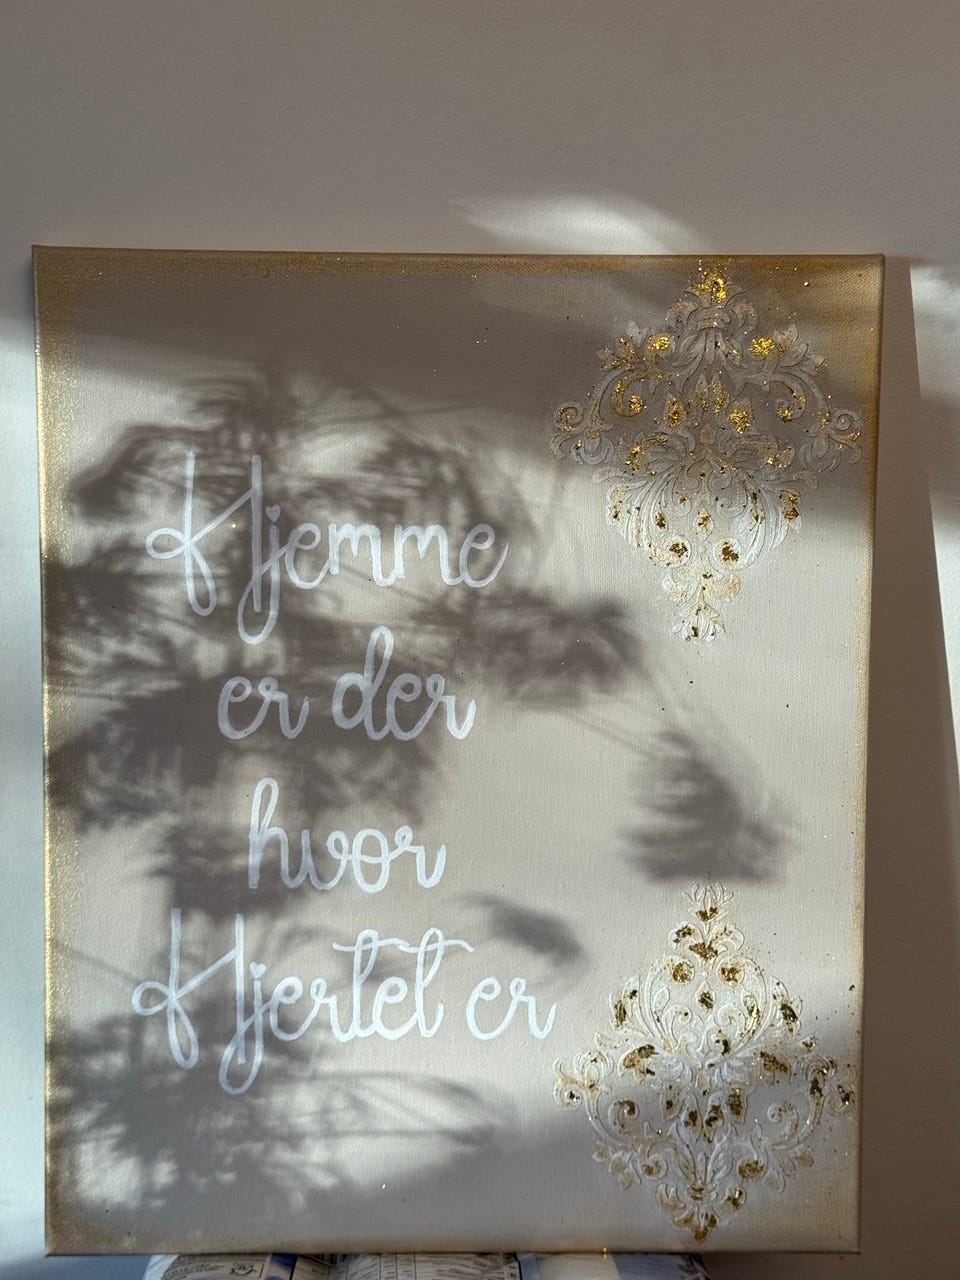 Hjemme
er der
hvor
Hjertet er